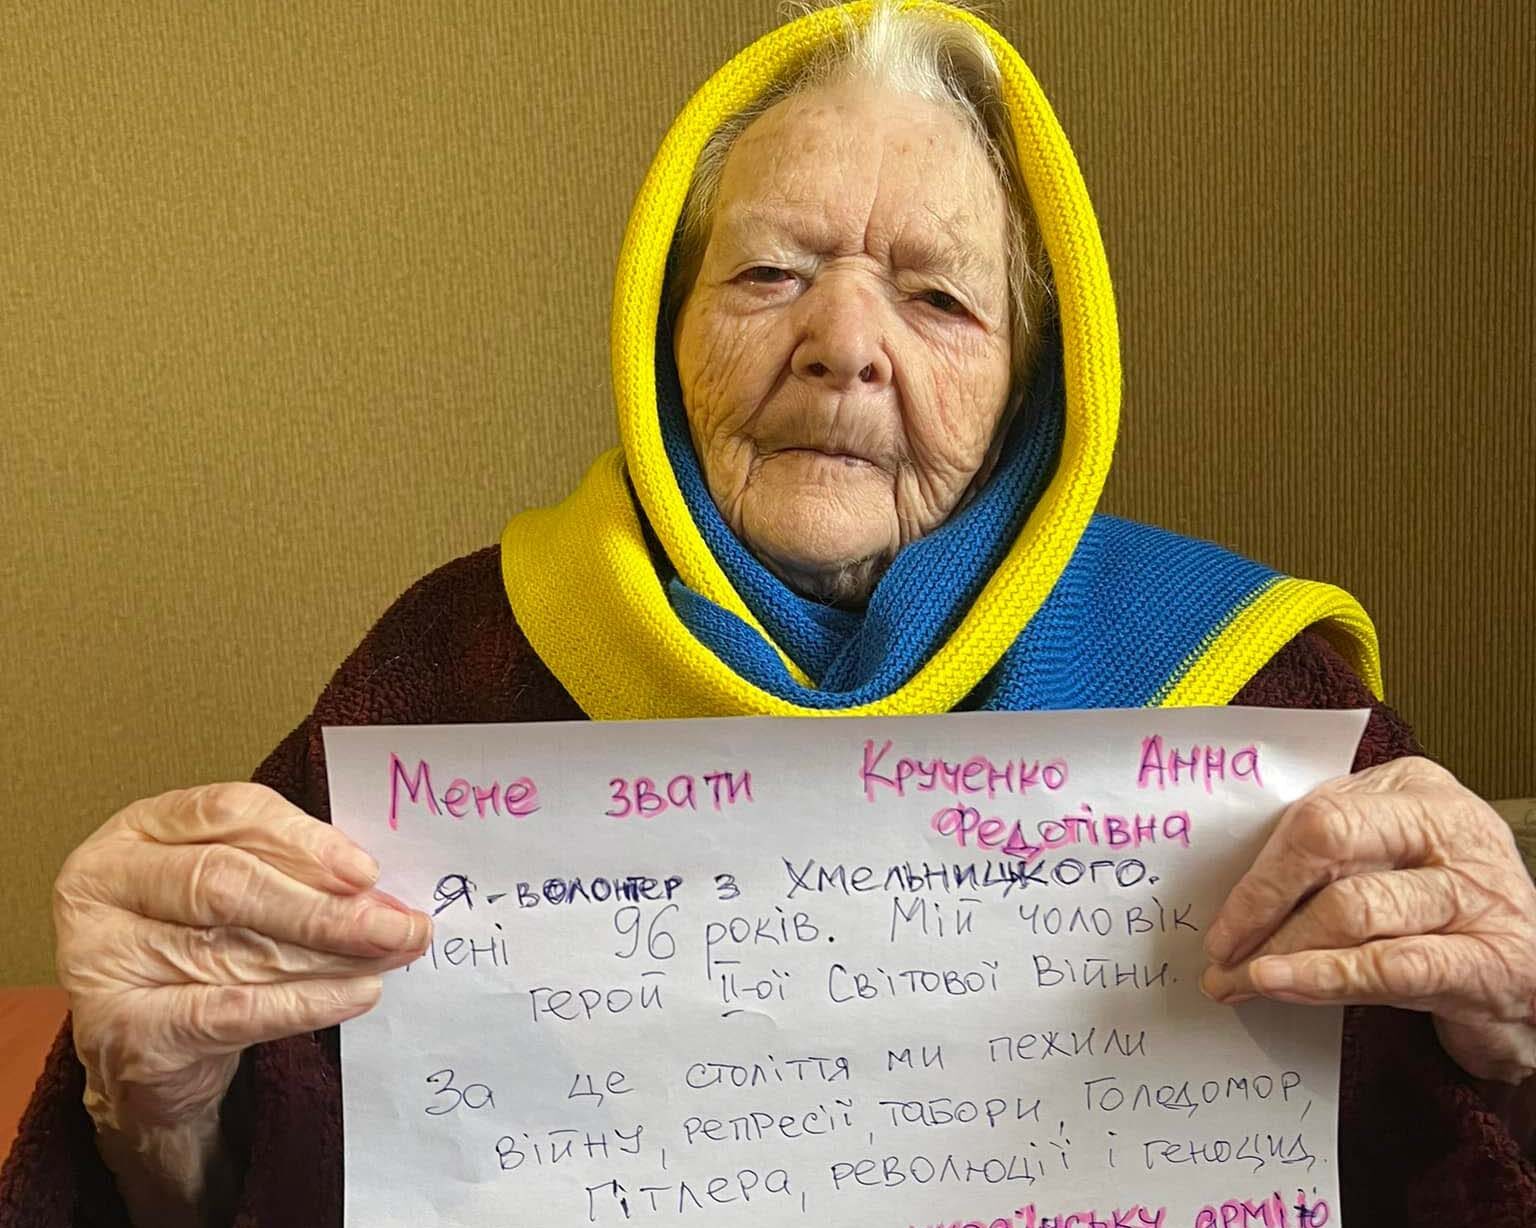 Мене звати Крученко Анна
Федотівна
Я - волонтер з Хмельницького.
Мені 96 років. Мій чоловік
герой ІІ-ої Світової Війни.
За це століття ми пежили
війну, репресії, табори, Голодомор,
Гітлера, революції і геноцид.
українську армію